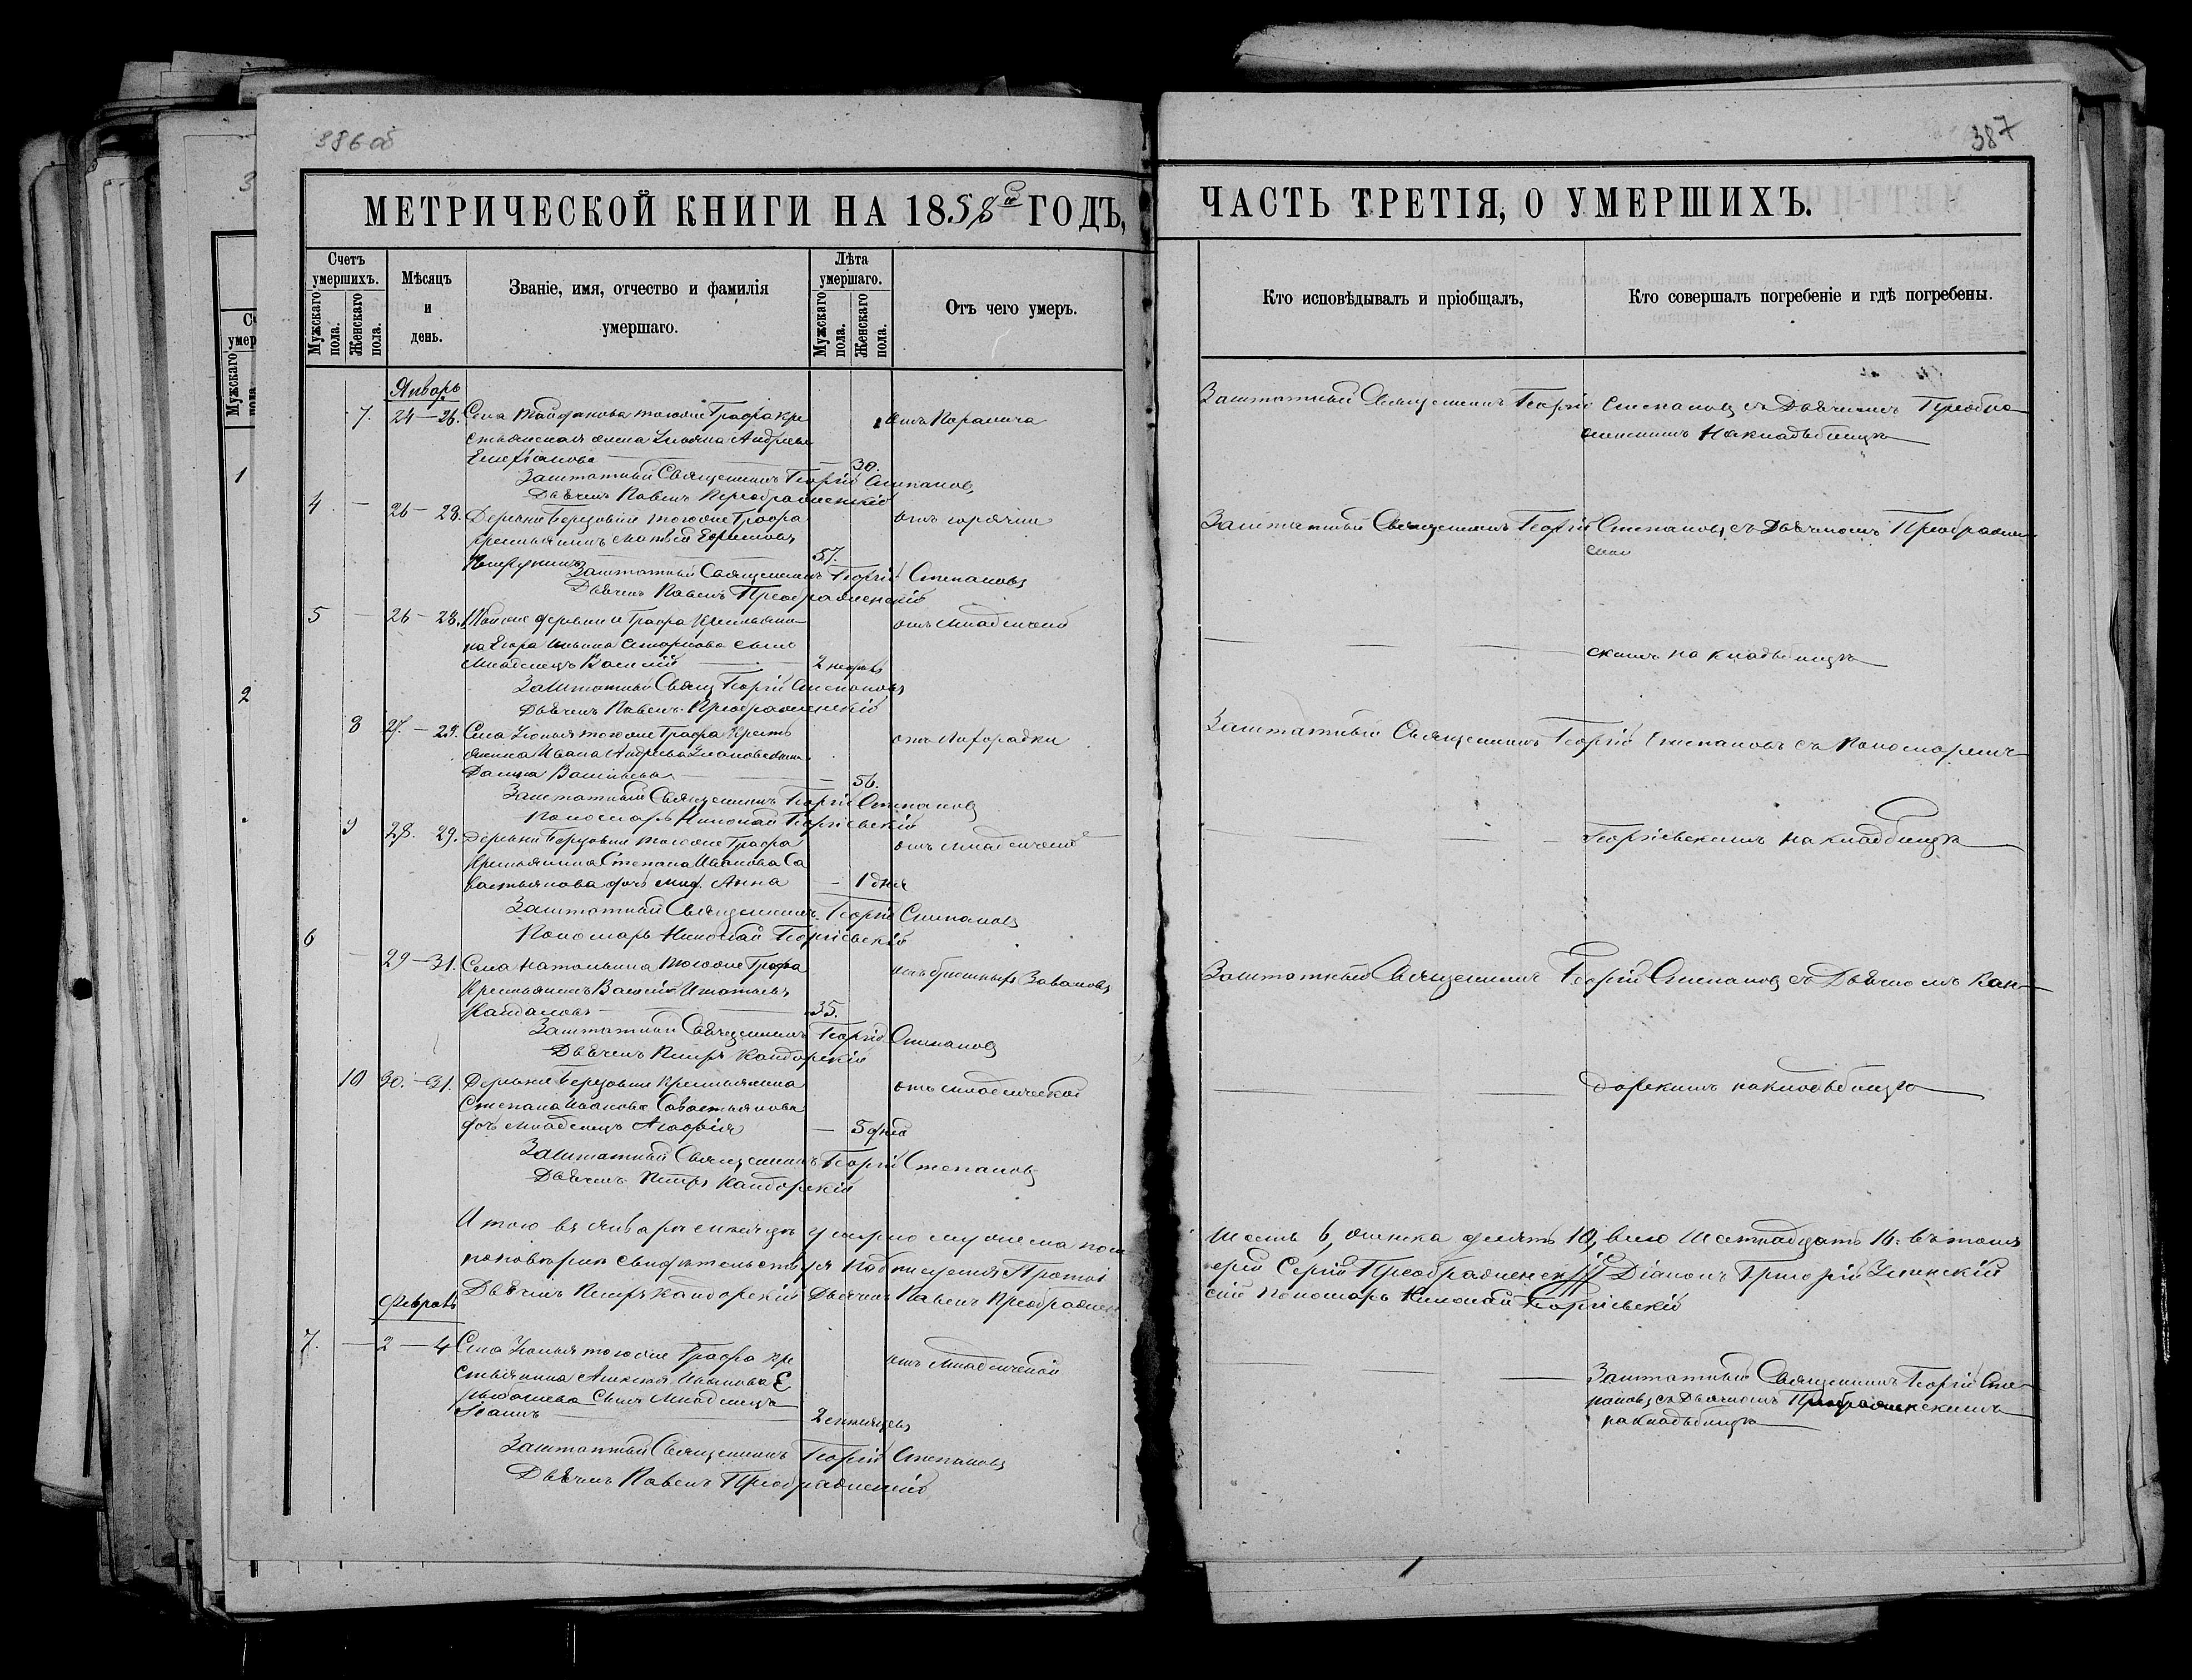 386 об
387
МЕТРИЧЕСКОЙ КНИГИ НА 1858й ГОДЪ,
ЧАСТЬ ТРЕТІЯ, О УМЕРШИХЪ.
Счетъ умершихъ.
Мужскаго пола.
Женскаго пола.
Мѣсяцъ и день.
Званіе, имя, отчество и фамилія умершаго.
Лѣта умершаго.
Мужскаго пола.
Женскаго пола.
Отъ чего умеръ.
Кто исповѣдывалъ и пріобщалъ,
Кто совершалъ погребеніе и гдѣ погребены.
Январь
7. 24–26. Села тогоже Графа кре
стьянская жена Ульяна Андреева
30.
отъ Паралича
Заштатный Священникъ Георгій Степановъ съ Дьячкомъ Преобра
женскимъ На кладбищѣ
Заштатный Священникъ Георгій Степановъ
Дьячекъ Павелъ Преображенскій
4 – 26–28. Деревни Березовки тогоже Графа
крестьянинъ Ефимовъ
57.
отъ горячки
Заштатный Священникъ Георгій Степановъ, съ Дьячкомъ Преображен
Заштатный Священникъ Георгій Степановъ
Дьячекъ Павелъ Преображенскій
5 – 26–28. деревни и Графа Крестьяни
на Егора сынъ
Младенецъ Василій 2 недѣль
отъ Младенческой
скимъ на кладбищѣ
Заштатный Свящ Георгій Степановъ
Дьячекъ Павелъ Преображенскій
8 27.–29. Села тогоже Графа Кресть
янина Ивана Андреева
Васильева 56.
отъ Лихорадки
Заштатный Священникъ Георгій Степановъ съ Пономаремъ
Заштатный Священникъ Георгій Степановъ
Пономарь Николай Георгіевскій
9 28. 29. Деревни Березовки тогоже Графа
Крестьянина Степана Иванова Са
вастьянова дочь млад. Анна – 1 дня
отъ младенческой
Георгіевскимъ на кладбищѣ
Заштатный Священникъ Георгій Степановъ
Пономарь Николай Георгіевскій
6 – 29–31. Села тогоже Графа
Крестьянинъ Василій
35.
Заштатный Священникъ Георгій Степановъ съ Дьячкомъ Кан
Заштатный Священникъ Георгій Степановъ
Дьячекъ Петръ Кандорскій
10 30.–31. Деревни Березовки Крестьянина
Степана Иванова Савастьянова
дочь младенецъ Агафія – 5 дней
отъ младенческой
дорскимъ на кладбищѣ
Заштатный Священникъ Георгій Степановъ
Дьячекъ Петръ Кандорскій
Итого въ Январѣ мѣсяцѣ умерло мужеска пола
Шесть 6, женска десять 10, всего Шестнадцать 16. въ томъ
свидѣтельствуя подписуемся Протоі
ерей Сергій Преображенскій Діаконъ Григорій
Дьячекъ Петръ Кандорскій Дьячекъ Павелъ Преображен
скій Пономарь Николай Георгіевскій
Февраль
7. – 2 – 4 Села тогоже Графа кре
стьянина Алексѣя Иванова
сынъ младенецъ
Іоаннъ 2 мѣсяцевъ
отъ Младенческой
Заштатный Священникъ Георгій Сте
пановъ съ Дьячкомъ Преображенскимъ
на кладбищѣ
Заштатный Священникъ Георгій Степановъ
Дьячекъ Павелъ Преображенскій